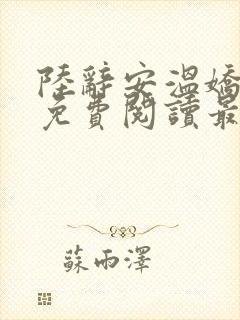 陸辭安溫嬌
免費閱讀最
蘇雨澤